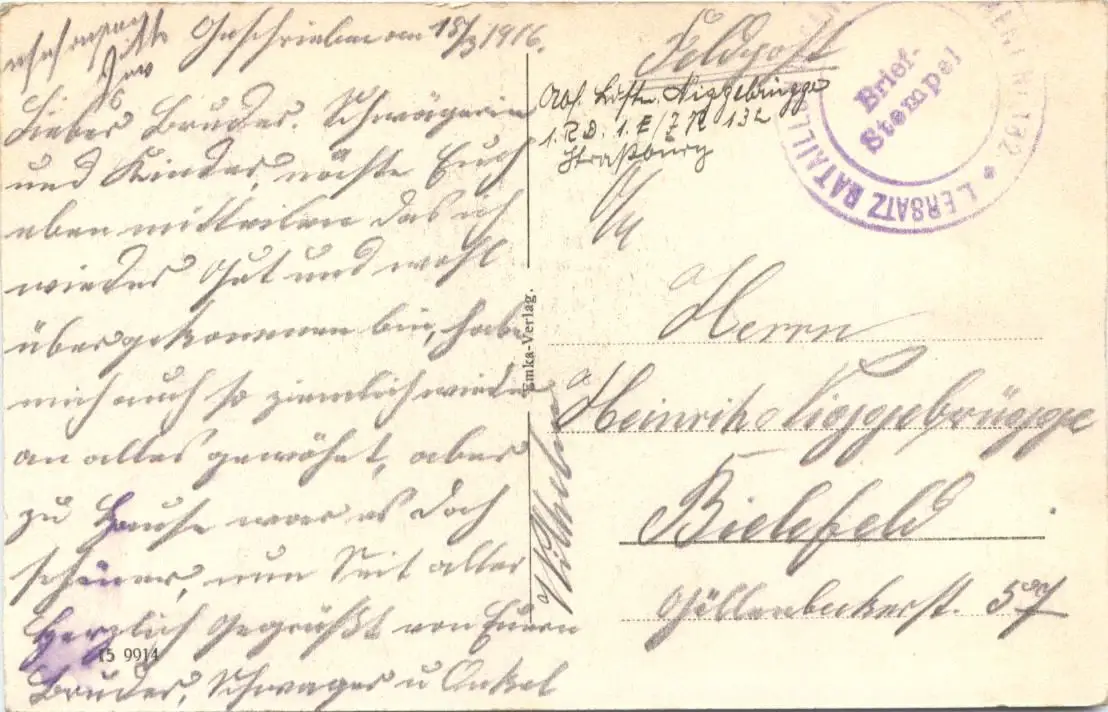 Geschrieben am 18/3 1916.
Lieber Bruder, Schwägerin
und Kinder, möchte Euch
eben mitteilen das ich
wieder Gut und wohl
übergekommen bin, habe
mich auch so ziemlich wieder
an alles gewöhnt, aber
zu Hause war es doch
schöner, nun Seit alle
Herzlich Gegrüßt von Euern
Bruder, Schwager u Onkel
Wilhelm
15 9914
Emka-Verlag.
Feldpost
Abs. Niggebrügge
1. R.D. 1. E/J R 132
Straßburg
Brief-
Stempel
I. ERSATZ BATAILL
132 *
Herrn
Heinrich Niggebrügge
Bielefeld
Göllenbeckerst. 57